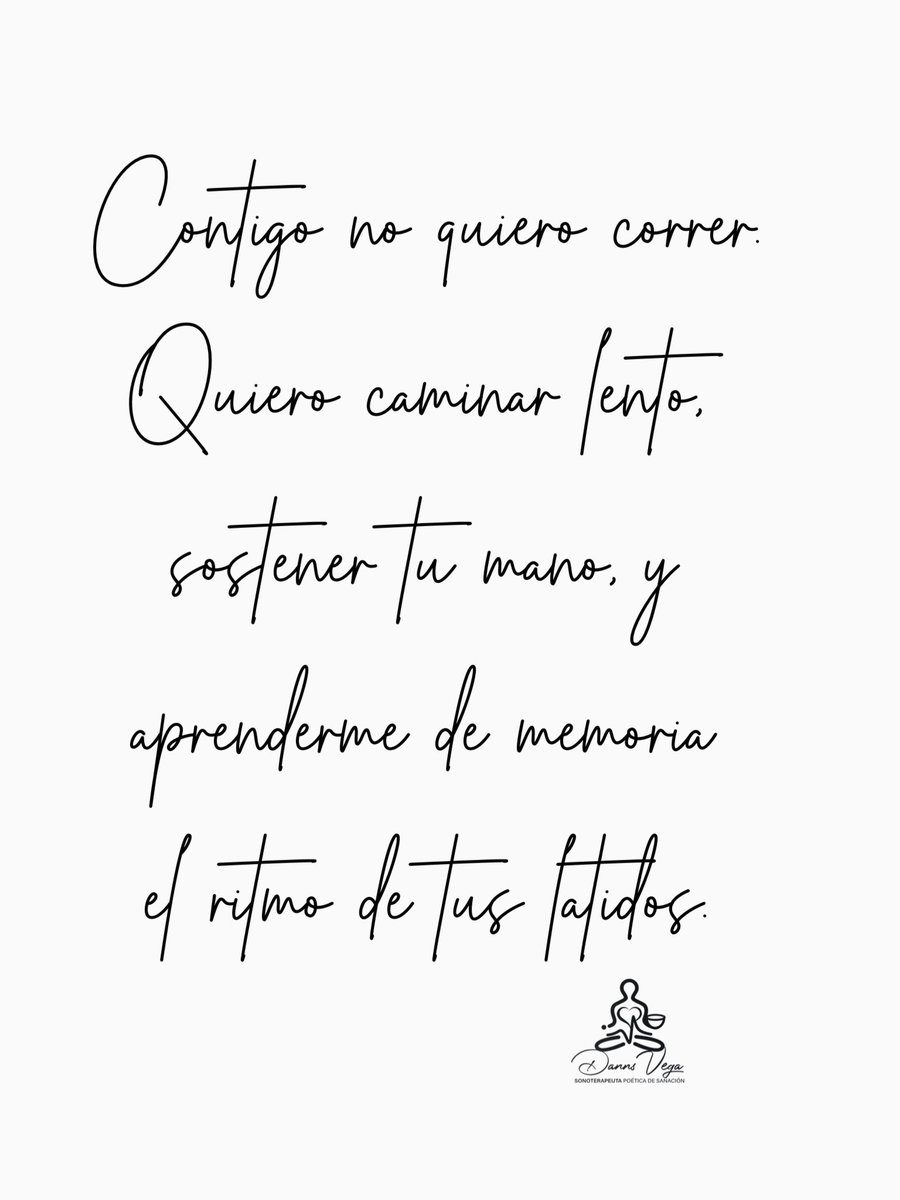 Contigo no quiero correr.
Quiero caminar lento,
sostener tu mano, y
aprenderme de memoria
el ritmo de tus latidos.
Danns Vega
SONOTERAPEUTA POÉTICA DE SANACIÓN